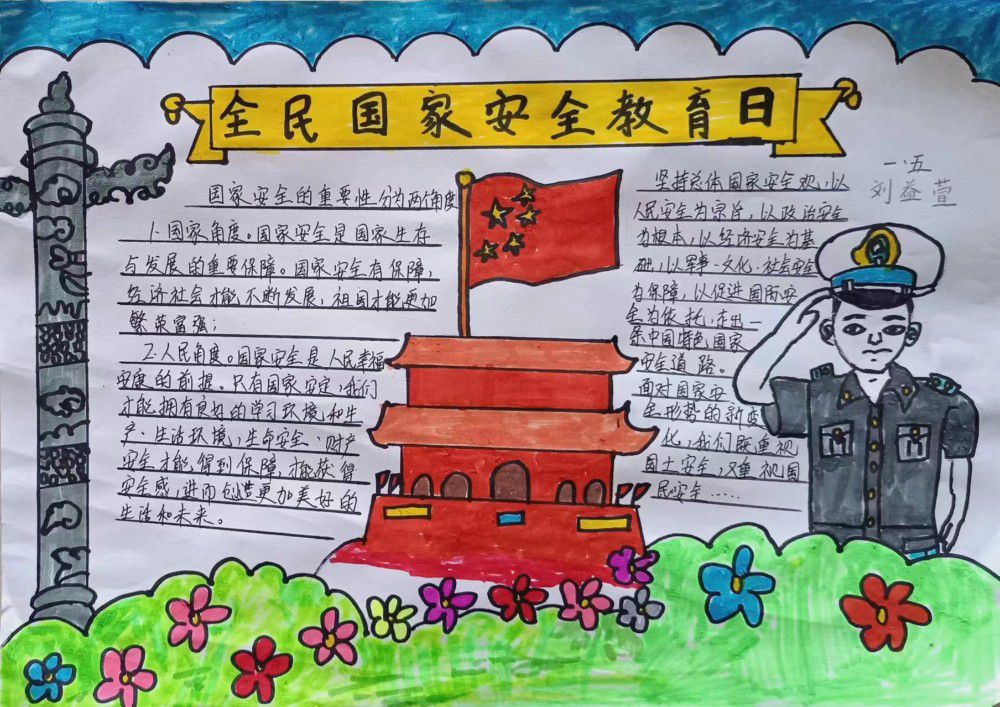 全民国家安全教育日
一.五
刘益萱
国家安全的重要性分为两个角度
1.国家角度。国家安全是国家生存
与发展的重要保障。国家安全有保障,
经济社会才能不断发展,祖国才能更加
繁荣富强;
2.人民角度。国家安全是人民幸福
安康的前提。只有国家安定,我们
才能拥有良好的学习环境和生
产、生活环境,生命安全、财产
安全才能得到保障,才能获得
安全感,进而创造更加美好的
生活和未来。
坚持总体国家安全观,以
人民安全为宗旨,以政治安全
为根本,以经济安全为基
础,以军事、文化、社会安全
为保障,以促进国际安
全为依托,走出一
条中国特色国家
安全道路。
面对国家安
全形势的新变
化,我们既重视
国土安全,又重视国
民安全……